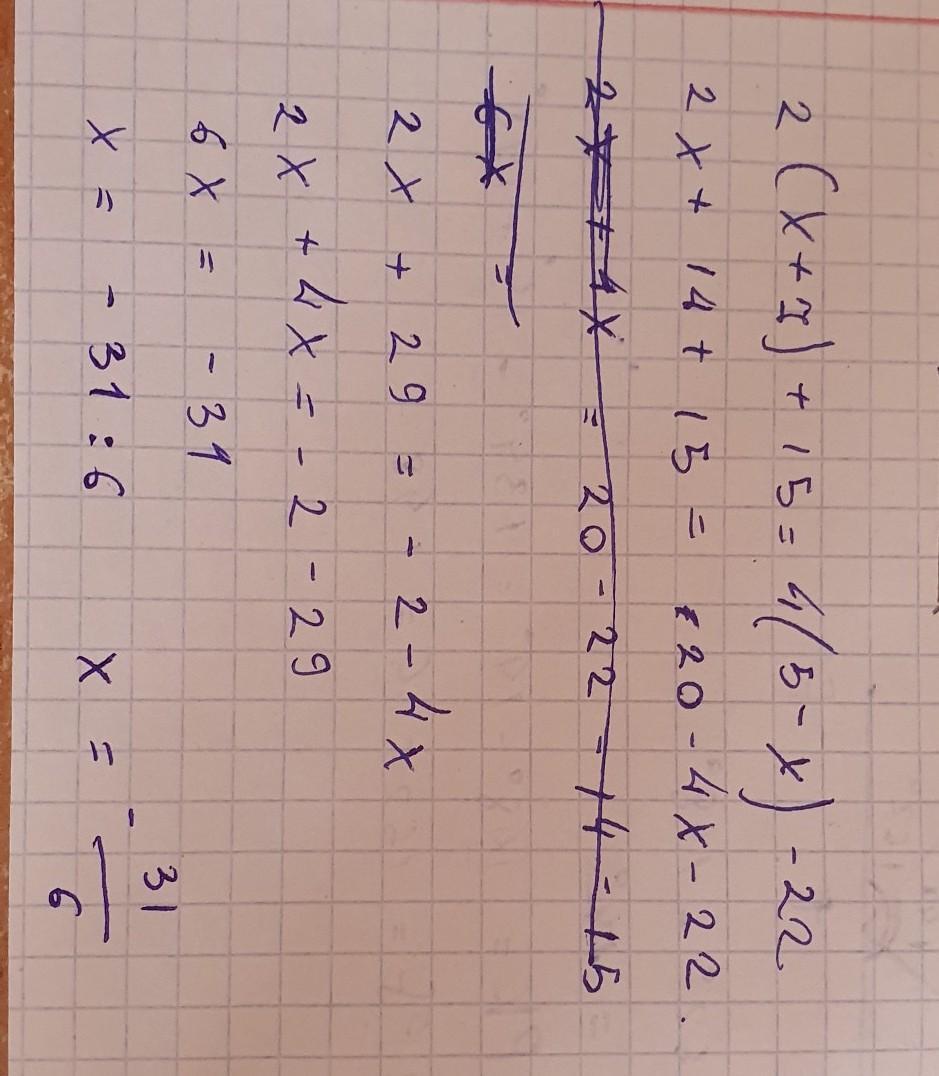 2(x+7)+15=4(5-x)-22
2x+14+15=20-4x-22.
2x+4x=20-22-14-15
6x =
2x+29=-2-4x
2x+4x=-2-29
6x=-31
x=-31:6 x=-31/6